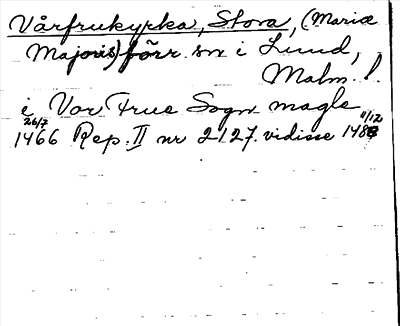 Vårfrukyrka, Stora, (Mariæ
Majoris) förr sn i Lund,
Malm. l.
i Vor Frue Sogn magle
26/7 11/12
1466 Rep. II nr 2127. vidisse 1488